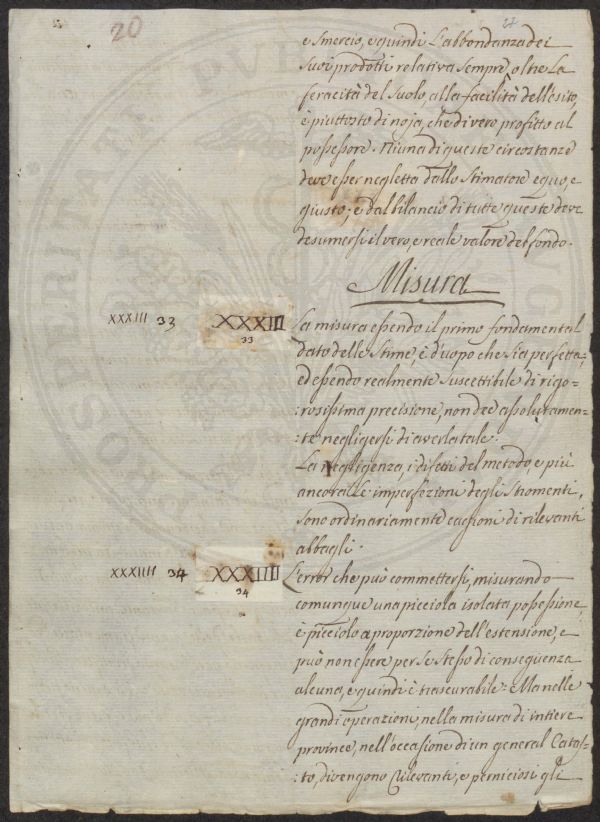 20
27
e smercio, e quindi l'abbondanza dei
suoi prodotti relativa sempre, oltre la
feracità del suolo, alla facilità dell'esito,
è piuttosto di noja, che di vero profitto al
possessore. Niuna di queste circostanze
deve esser negletta dallo Stimatore equo, e
giusto; e dal bilancio di tutte queste deve
desumersi il vero, e reale valore del fondo.
Misura
XXXIII 33 XXXIII
33
La misura essendo il primo fondamental
dato delle Stime, è d'uopo che sia perfetta,
ed essendo realmente suscettibile di rigo=
:rosissima precisione, non dee assolutamen=
:te negligersi di avela tale.
La negligenza, i difetti del metodo, e più
ancora le imperfezioni degli stromenti,
sono ordinariamente cagioni di rilevanti
abbagli.
XXXIIII 34 XXXIIII
34
L'error che può commettersi, misurando
comunque una picciola isolata possessione,
è picciolo a proporzione dell'estensione, e
può non essere per se stesso di conseguenza
alcuna, e quindi è trascurabile: Ma nelle
grandi operazioni, nella misura di intiere
province, nell'occasione di un general Catas=
:to, divengono rilevanti, e perniciosi gli